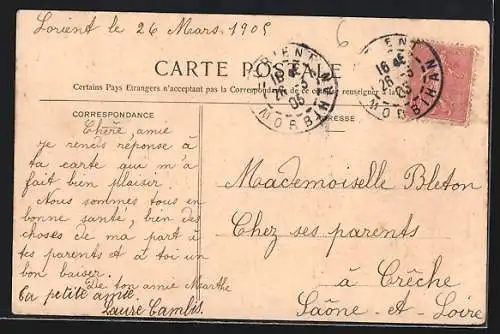 Lorient le 26 Mars 1905
6
LORIENT
16 E
26 - 3
05
MORBIHAN
LORIENT
16 E
26 - 3
05
MORBIHAN
CARTE POSTALE
Certains Pays Etrangers n'acceptant pas la Correspondance de ce côté se renseigner à la
CORRESPONDANCE
ADRESSE
Chère, amie
je rends réponse à
ta carte qui m'a
fait bien plaisir.
Nous sommes tous en
bonne santé, bien des
choses de ma part à
tes parents et à toi un
bon baiser.
De ton amie Marthe
Ta petite amie.
Laure Camblis.
Mademoiselle Bleton
Chez ses parents
à Crêche
Saône-et-Loire